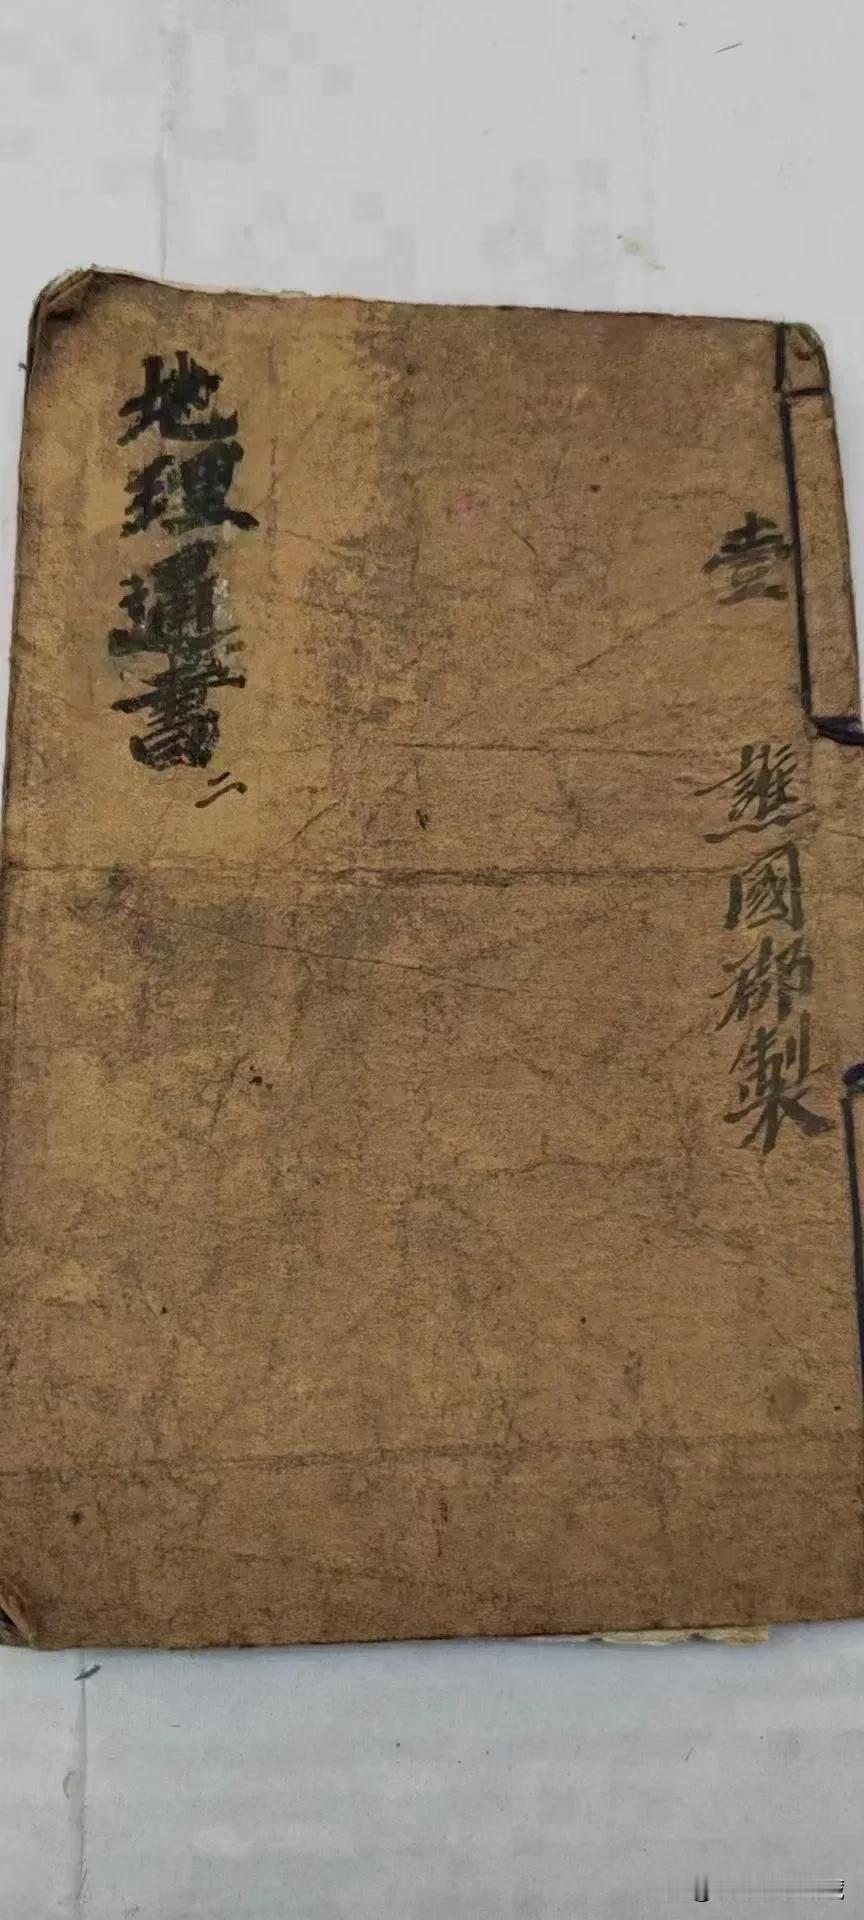 壹
譙國郡製
地理通書
二